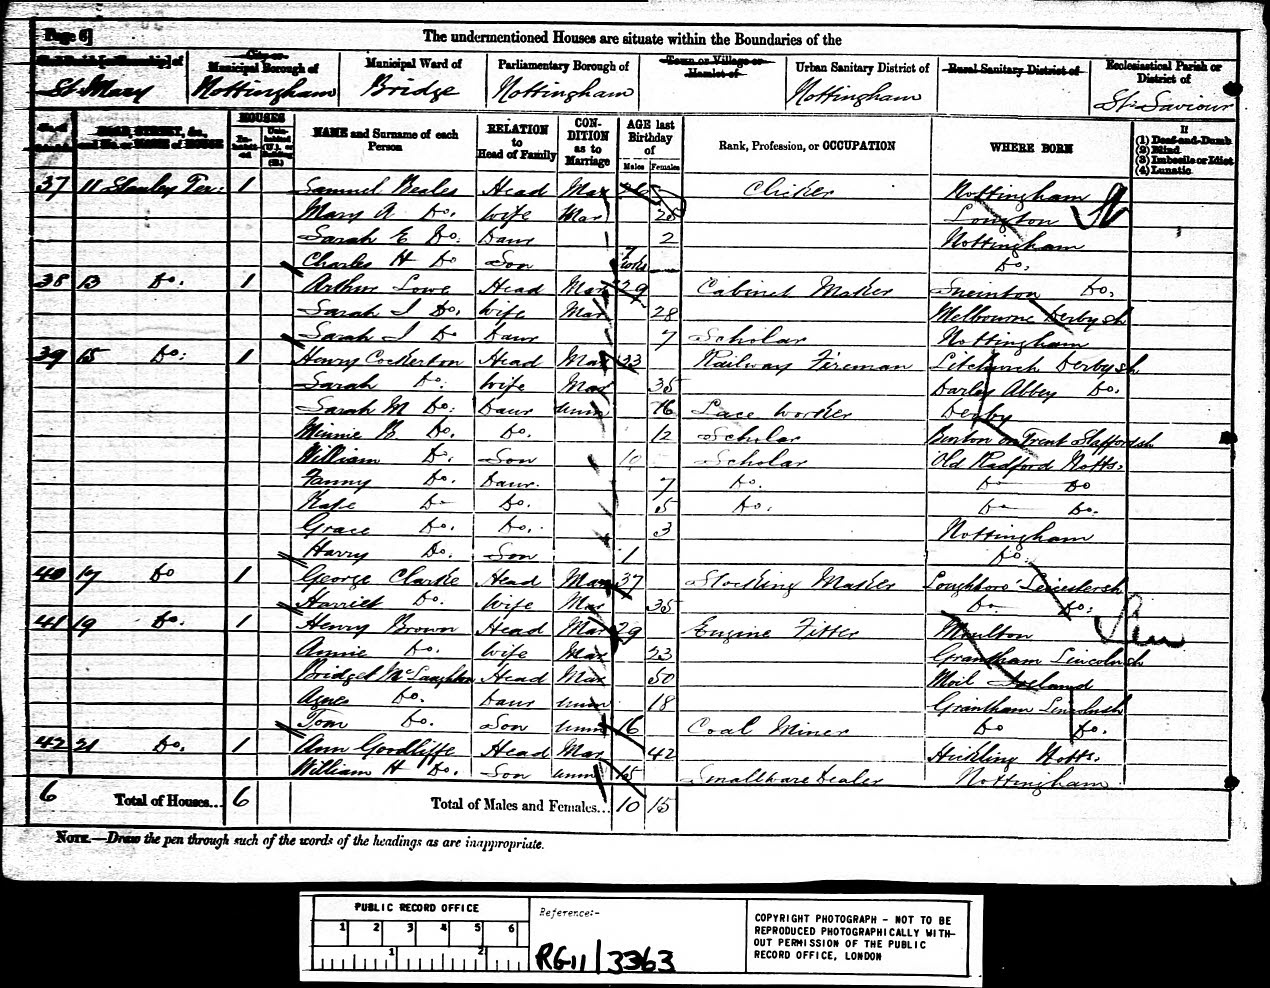 Page 6]
The undermentioned Houses are situate within the Boundaries of the
City or Municipal Borough of
Municipal Ward of
Parliamentary Borough of
Town or Village or Hamlet of
Urban Sanitary District of
Rural Sanitary District of
Ecclesiastical Parish or District of
St Mary
Nottingham
Bridge
Nottingham
Nottingham
St Saviour
ROAD, STREET, &c., and No. or NAME of HOUSE
HOUSES
In-habit-ed
Unin-habited (U.), or Building (B.)
NAME and Surname of each Person
RELATION to Head of Family
CON-DITION as to Marriage
AGE last Birthday of
Males Females
Rank, Profession, or OCCUPATION
WHERE BORN
If
(1) Deaf-and-Dumb
(2) Blind
(3) Imbecile or Idiot
(4) Lunatic
37 11 Stanley Ter: 1 Samuel Beales Head Mar 26 Clicker Nottingham
Mary A Do. Wife Mar Longton
Sarah E Do. Daur 2 Nottingham
Charles H Do Son Do.
38 13 Do. 1 Arthur Lowe Head Mar 29 Cabinet Maker Sneinton Do.
Sarah J Do. Wife Mar 28 Melbourne Derbysh
Sarah J Do Daur 7 Scholar Nottingham
39 15 Do: 1 Henry Cockerton Head Mar 33 Railway Fireman Litchurch Derbysh
Sarah Do: Wife Mar 35 Darley Abbey Do.
Sarah M Do: Daur Unm 16 Lace Worker Derby
Minnie B. Do. Do. 12 Scholar Burton on Trent Staffordsh
William D: Son 10 Scholar Old Radford Notts.
Fanny Do. Daur. 7 Do. Do Do
Kate Do Do. 5 Do. Do Do.
Grace Do. Do. 3 Nottingham
Harry Do. Son 1 Do
40 17 Do 1 George Clarke Head Mar 37 Stocking Maker Loughboro' Leicestersh
Harriet Do. Wife Mar 35 Do. Do:
41 19 Do. 1 Henry Brown Head Mar 29 Engine Fitter Moulton
Annie Do. Wife Mar 23 Grantham Lincolnsh
Bridget McLaughlin Head Mar 50 Ireland
Agnes Do. Daur Unm 18 Grantham Lincolnsh
Tom Do. Son Unm 16 Coal Miner Do Do.
42 21 Do. 1 Ann Goodliffe Head Mar 42 Hickling Notts.
William H Do. Son Unm 15 Smallware Dealer Nottingham
6 Total of Houses... 6 Total of Males and Females... 10 15
NOTE.—Draw the pen through such of the words of the headings as are inappropriate.
PUBLIC RECORD OFFICE
1 2 3 4 5 6
1 2
Reference:-
RG11/3363
COPYRIGHT PHOTOGRAPH - NOT TO BE
REPRODUCED PHOTOGRAPHICALLY WITH-
OUT PERMISSION OF THE PUBLIC
RECORD OFFICE, LONDON